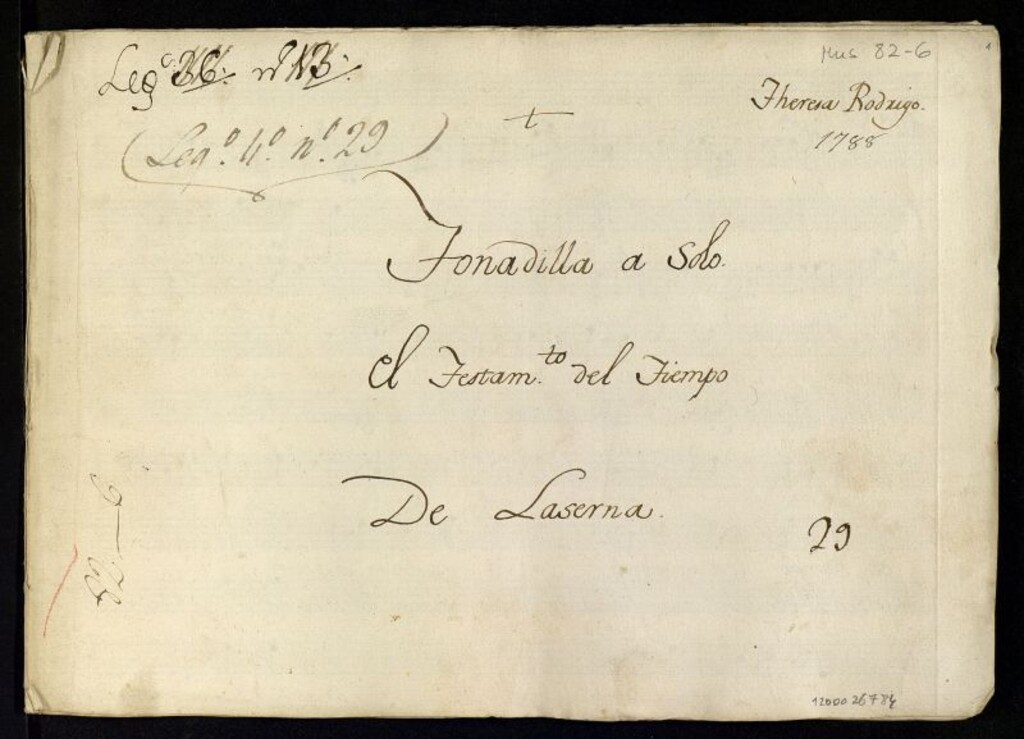 Mus 82-6
Leg.º 36. nº 13.
Theresa Rodrigo.
1788
(Leg.º 4.º n.º 29)
Tonadilla a Solo.
el Testam.to del Tiempo
De Laserna.
29
82-6
1200026784